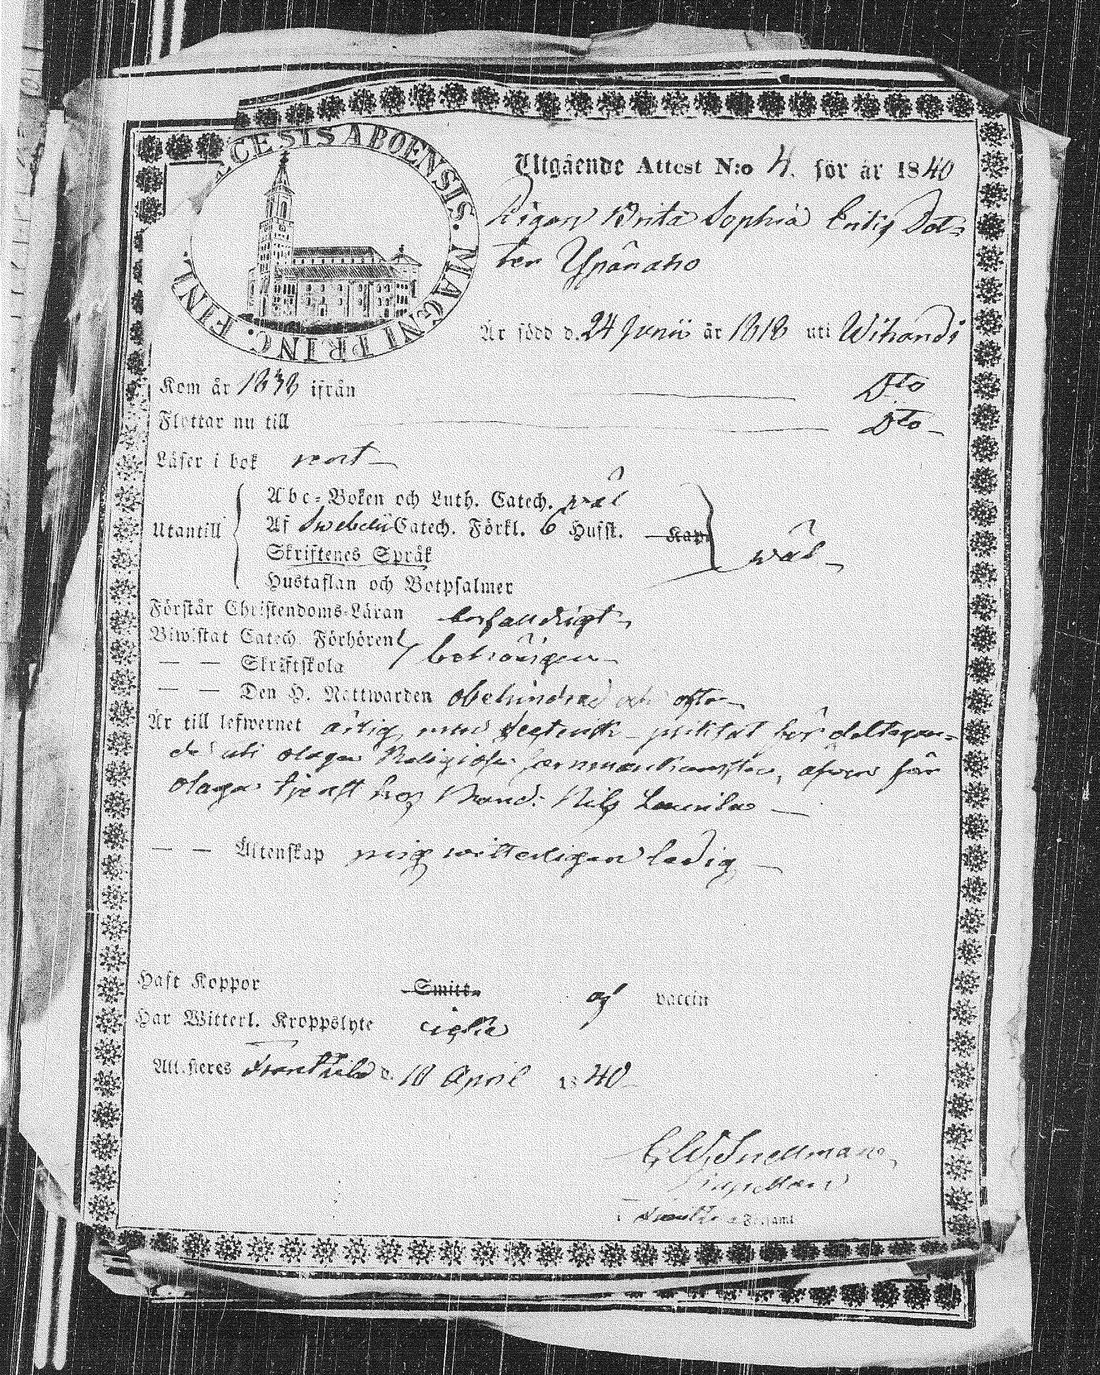 CESIS ABOENSIS. MAGNI PRINC. FINL.
Utgående Attest N:o 4. för år 1840
Pigan Brita Sophia Eriks Dot-
ter Ypänaho
Är född d. 24 Junii år 1818 uti Wihandi
Kom år 1838 ifrån Dto
Flyttar nu till Dto
Läser i bok rent
Utantill
Abc-Boken och Luth. Catech. wäl
Af Swebelii Catech. Förkl. 6 Hufst. Kap.
wäl
Skriftenes Språk
Hustaflan och Botpsalmer
Förstår Christendoms-Läran enfalldigt
Biwistat Catech. Förhören
— — Skriftskola behörigen
— — Den H. Nattwarden obehindrad och ofta
Är till lefwernet ärlig, men pliktat för deltagan-
de uti olaga Religiösa Sammankomster, äfven för
olaga tjenst hos Bond. Nils
— — Äktenskap mig witterligen ledig
Haft Koppor Smitta af vaccin
Har Witterl. Kroppslyte
Attesteres Frantsila d. 18 April 1840
C W Snellman
Capellan
i Frantsila Församl.